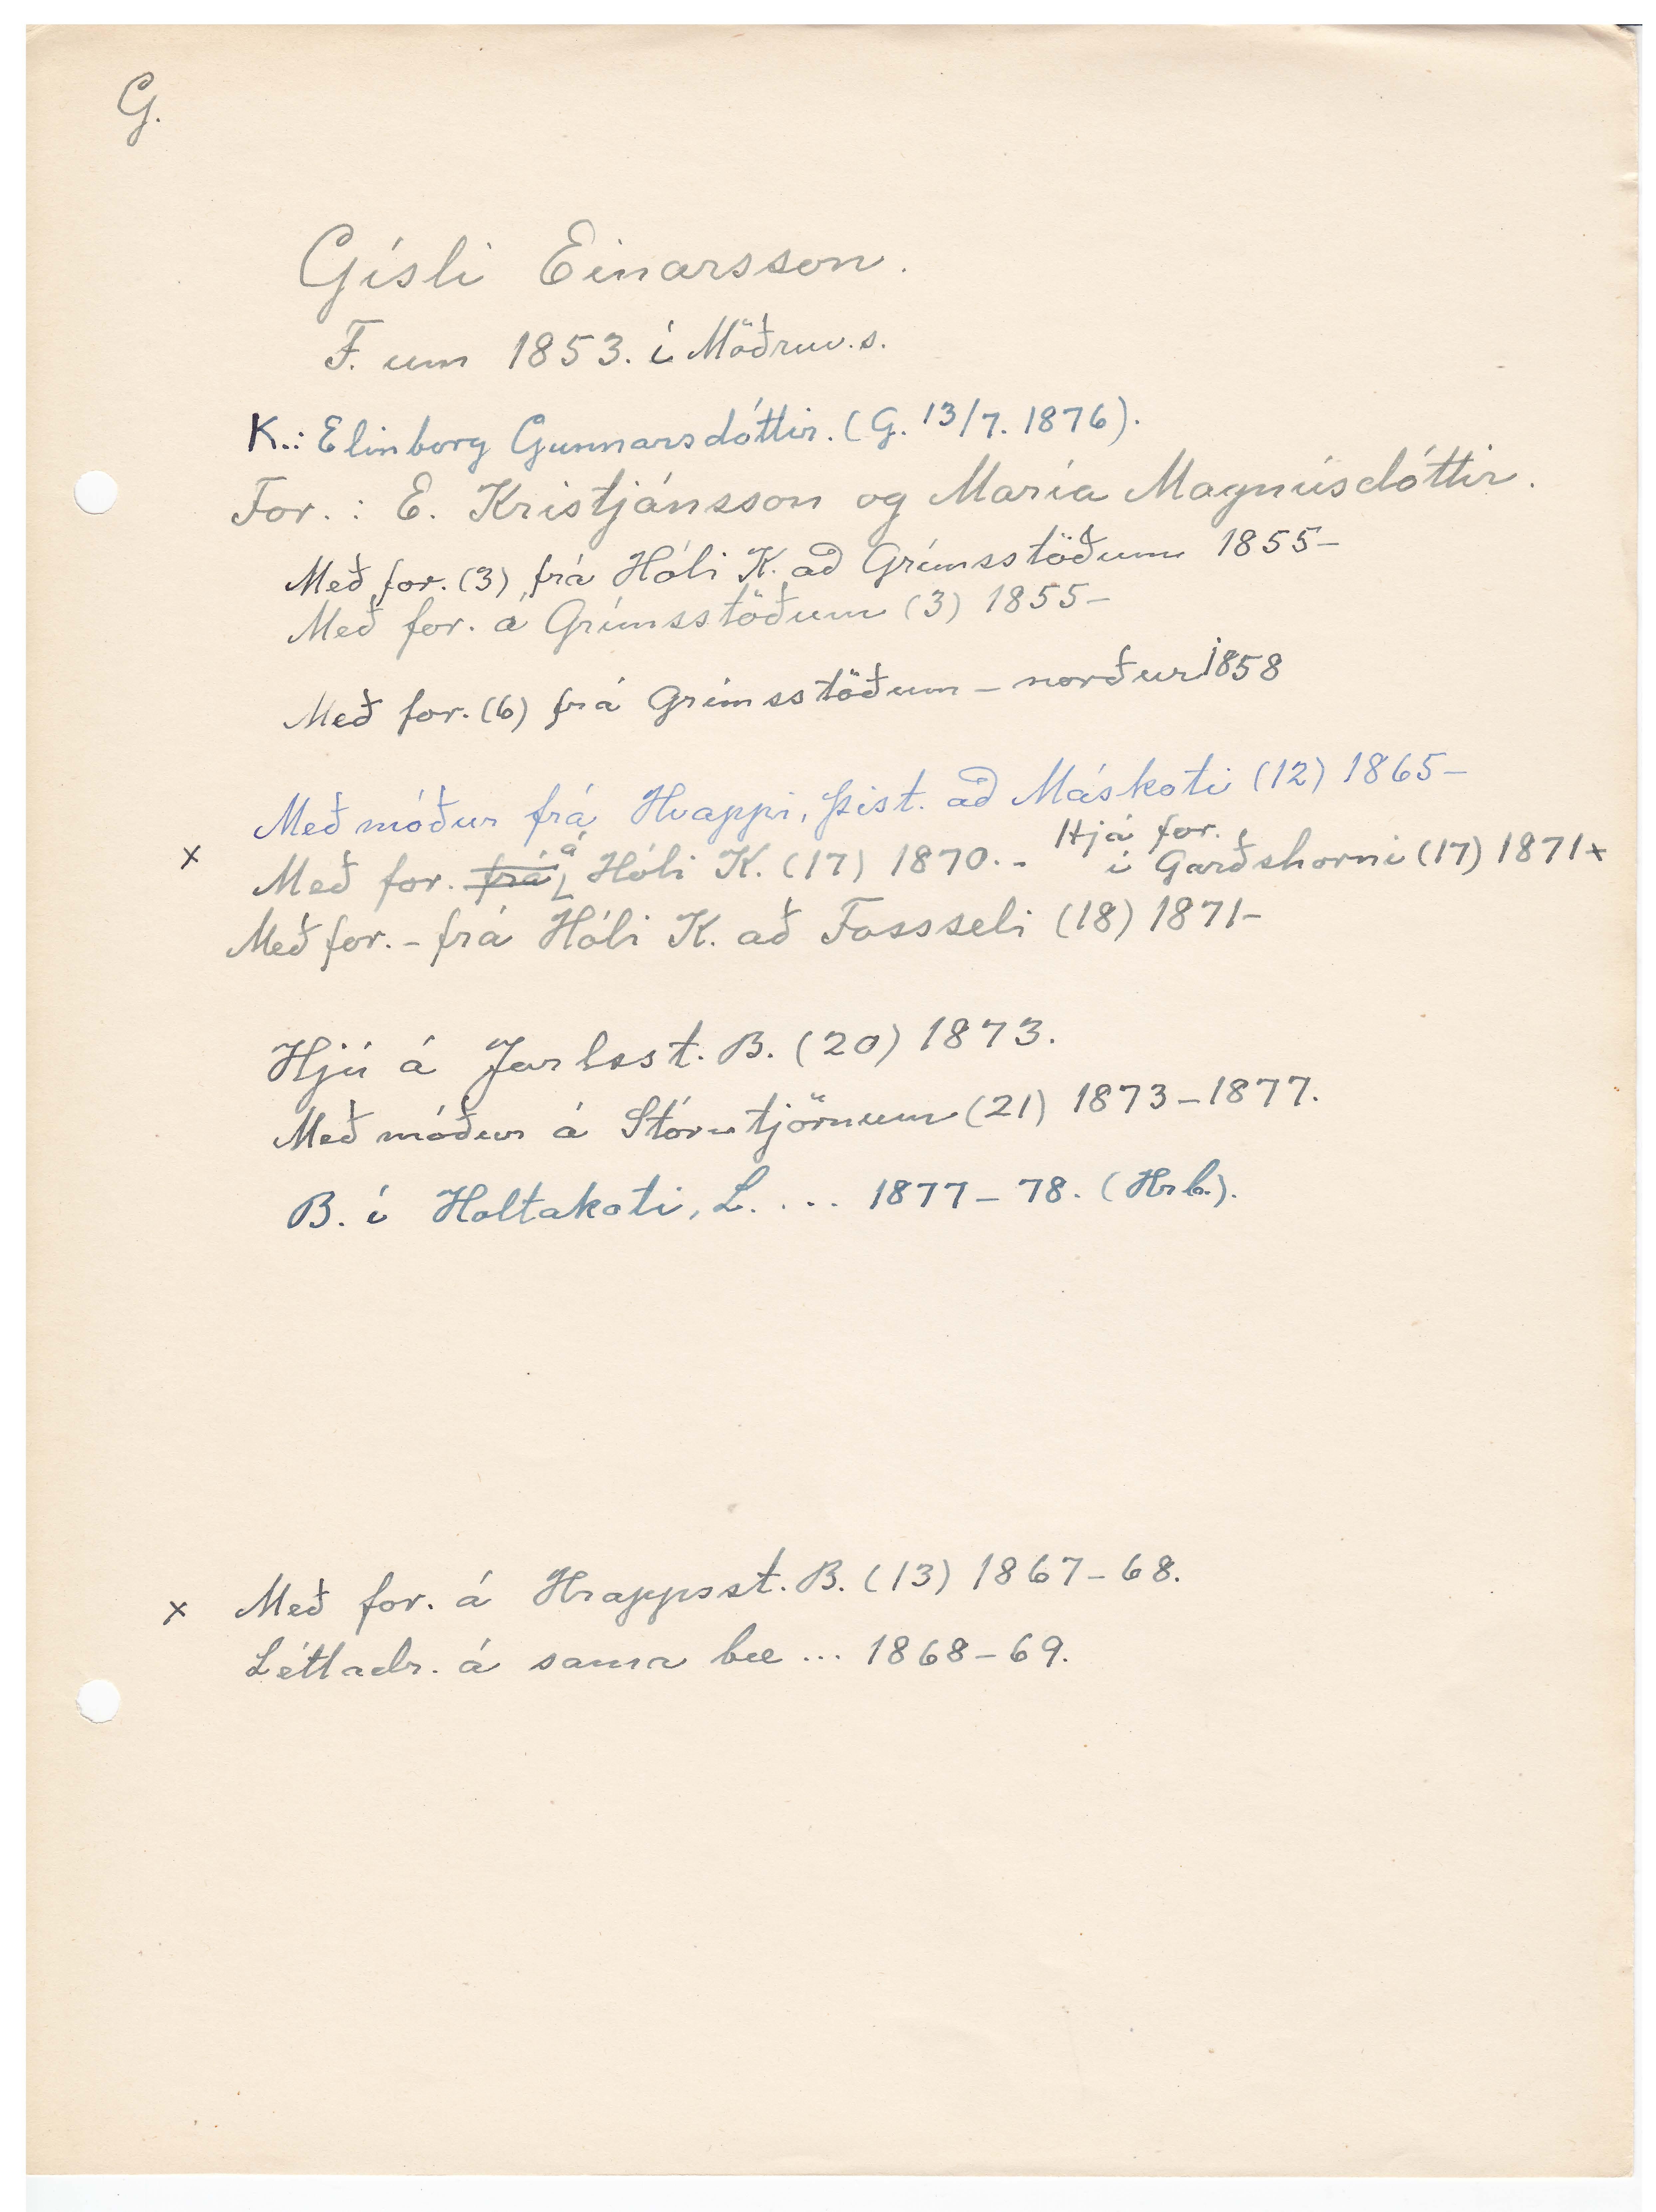 G.
Gísli Einarsson.
F. um 1853. í Möðruv.s.
K.: Elinborg Gunnarsdóttir. (G. 13/7. 1876).
For.: E. Kristjánsson og María Magnúsdóttir.
Með for. (3) frá Hóli K. að Grímsstöðum 1855-
Með for. á Grímsstöðum (3) 1855-
Með for. (6) frá Grímsstöðum - norður 1858
Með móður frá Hvappi, Þist. að Máskoti (12) 1865-
x Með for. frá á Hóli K. (17) 1870.- Hjá for. í Garðshorni (17) 1871 x
Með for. - frá Hóli K. að Fossseli (18) 1871-
Hjú á Jarlsst. B. (20) 1873.
Með móður á Stórutjörnum (21) 1873-1877.
B. í Holtakoti, L. ... 1877-78. (Hrb.).
x Með for. á Hrappsst. B. (13) 1867-68.
Léttadr. á sama bæ ... 1868-69.